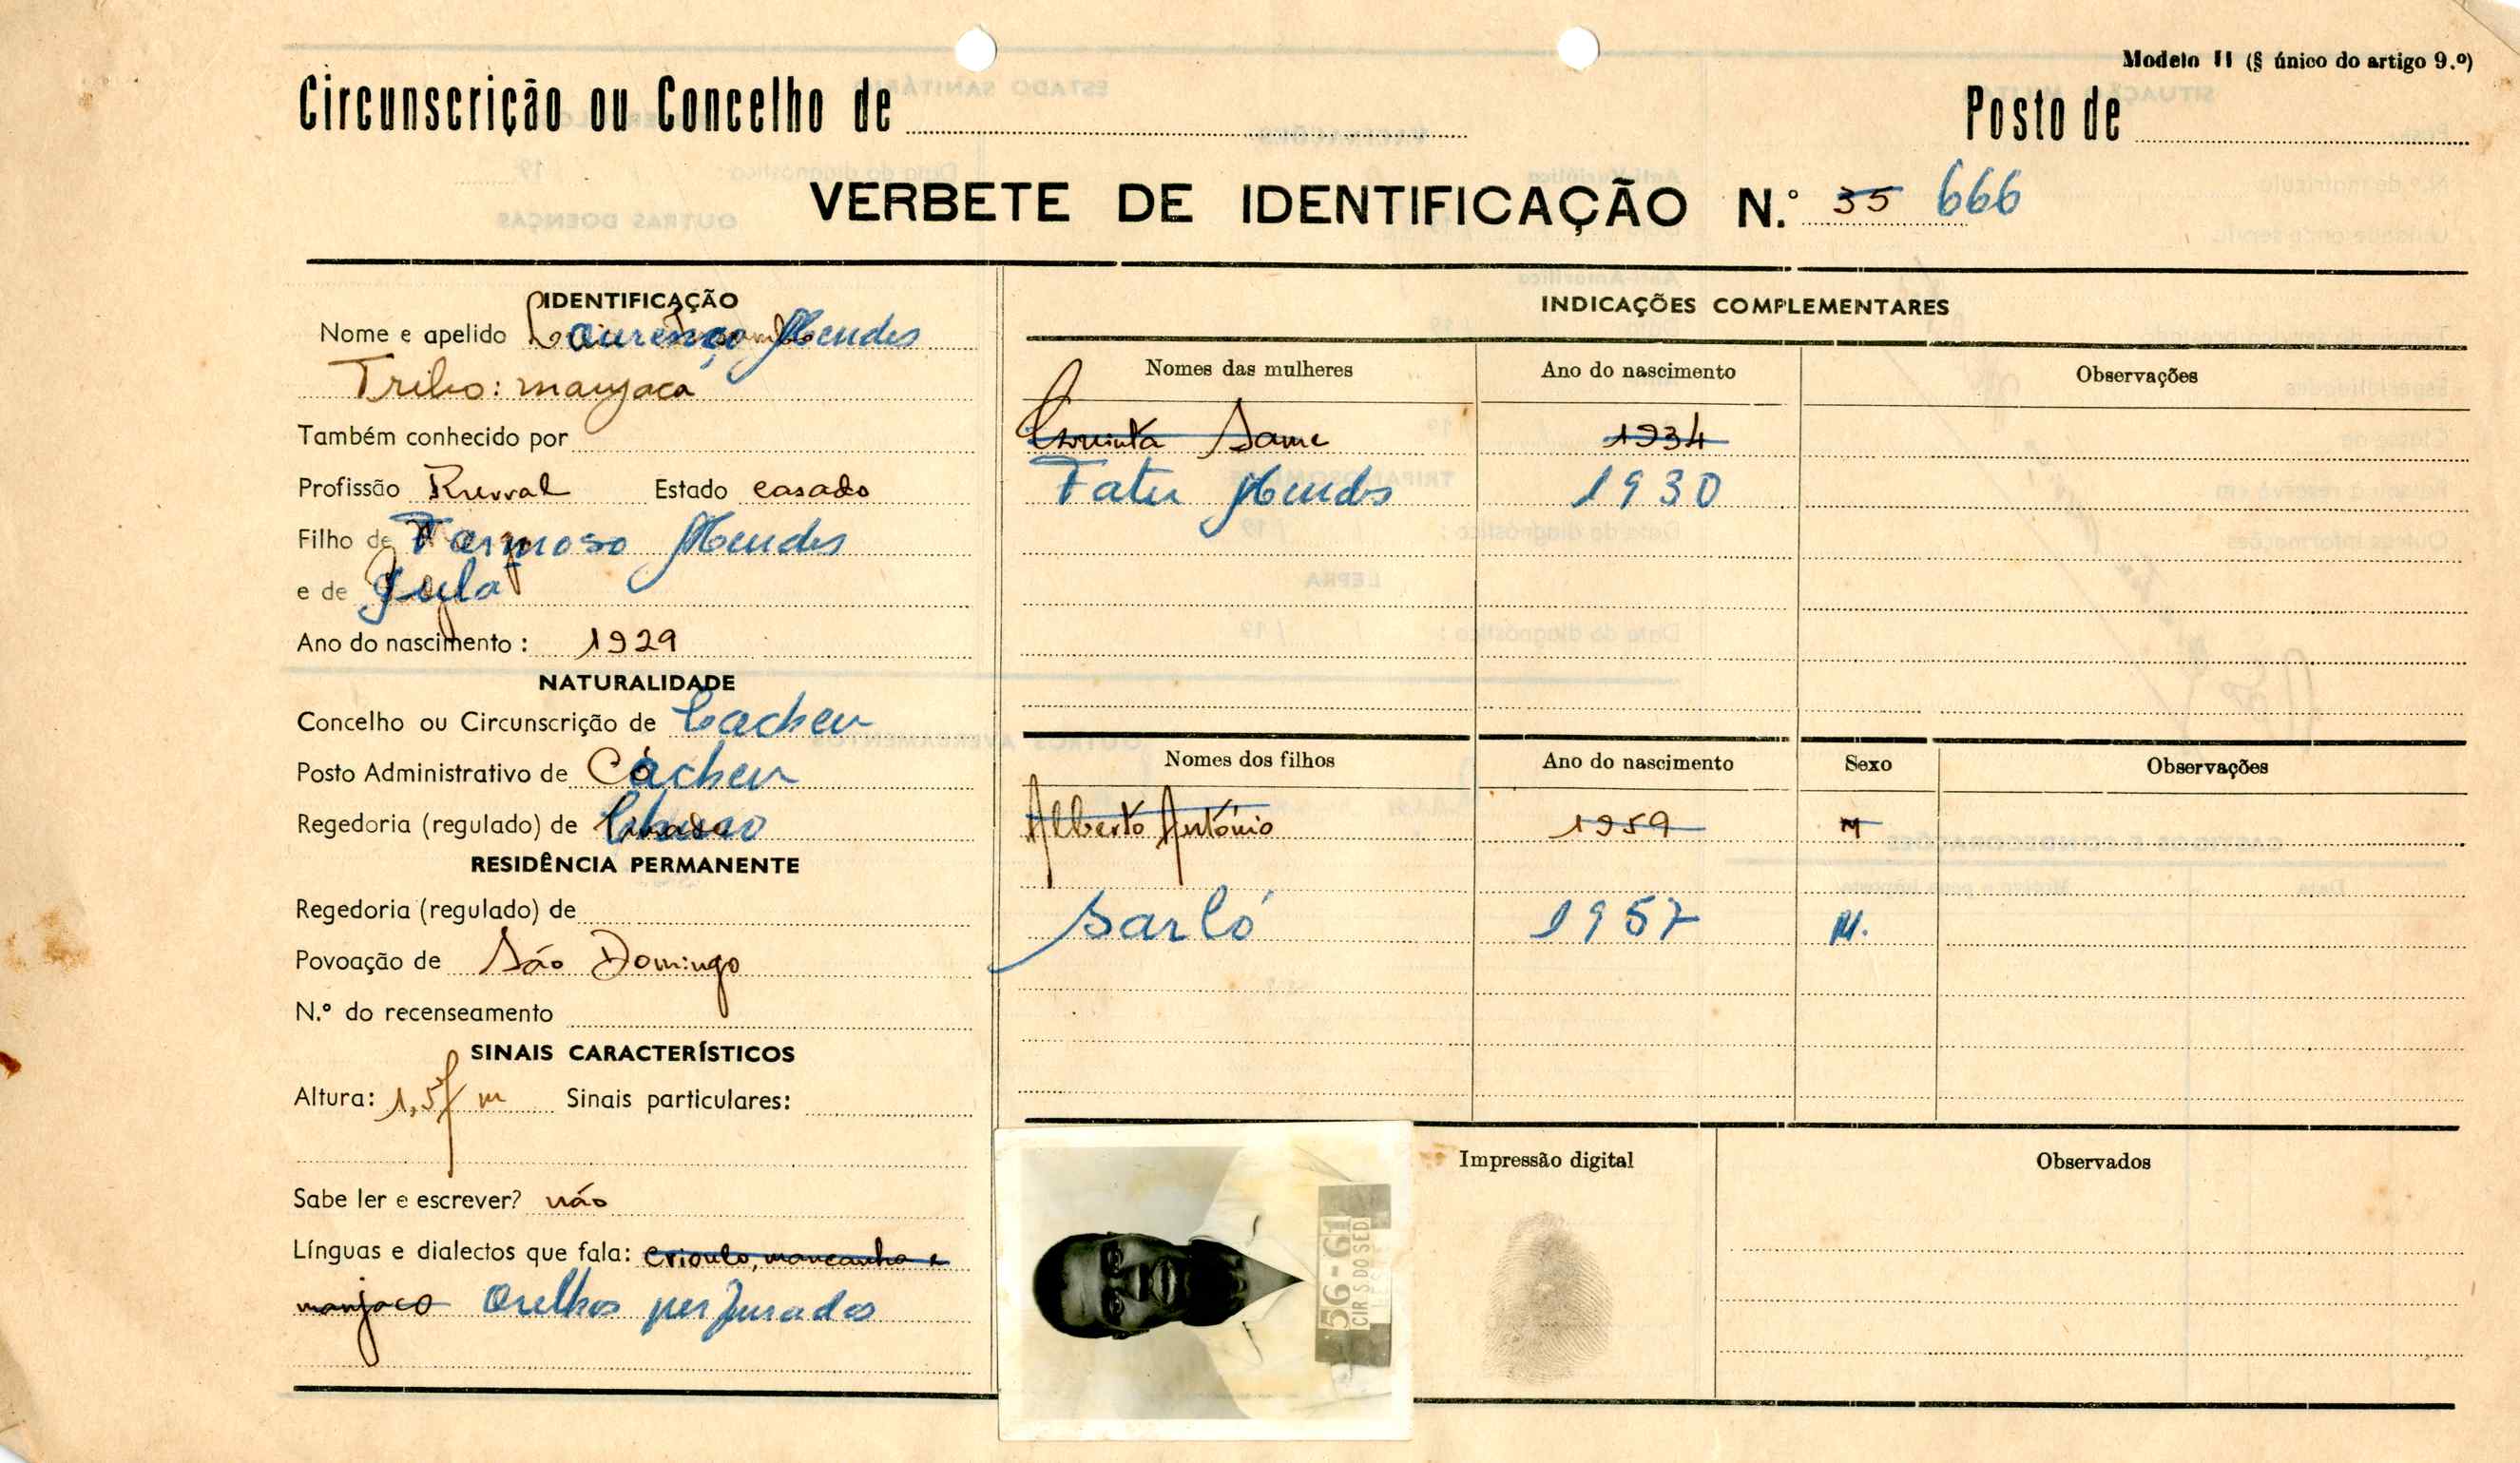 Modelo II (§ único do artigo 9.º)
Circunscrição ou Concelho de
Posto de
VERBETE DE IDENTIFICAÇÃO N.º 35 666
IDENTIFICAÇÃO
Nome e apelido Lourenço Mendes
Tribo: manjaca
Também conhecido por
Profissão Rural Estado casado
Filho de Farmoso Mendes
e de Jula
Ano do nascimento: 1929
NATURALIDADE
Concelho ou Circunscrição de Cacheu
Posto Administrativo de Cacheu
Regedoria (regulado) de
RESIDÊNCIA PERMANENTE
Regedoria (regulado) de
Povoação de São Domingo
N.º do recenseamento
SINAIS CARACTERÍSTICOS
Altura: 1,57 m Sinais particulares:
Sabe ler e escrever? não
Línguas e dialectos que fala: crioulo, mancanha e
manjaco orelhas perfuradas
INDICAÇÕES COMPLEMENTARES
Nomes das mulheres Ano do nascimento Observações
Same 1934
Fatu Mendes 1930
Nomes dos filhos Ano do nascimento Sexo Observações
Alberto António 1959 M
Sarló 1957 M.
56-61
CIR S DO SED
Impressão digital
Observados